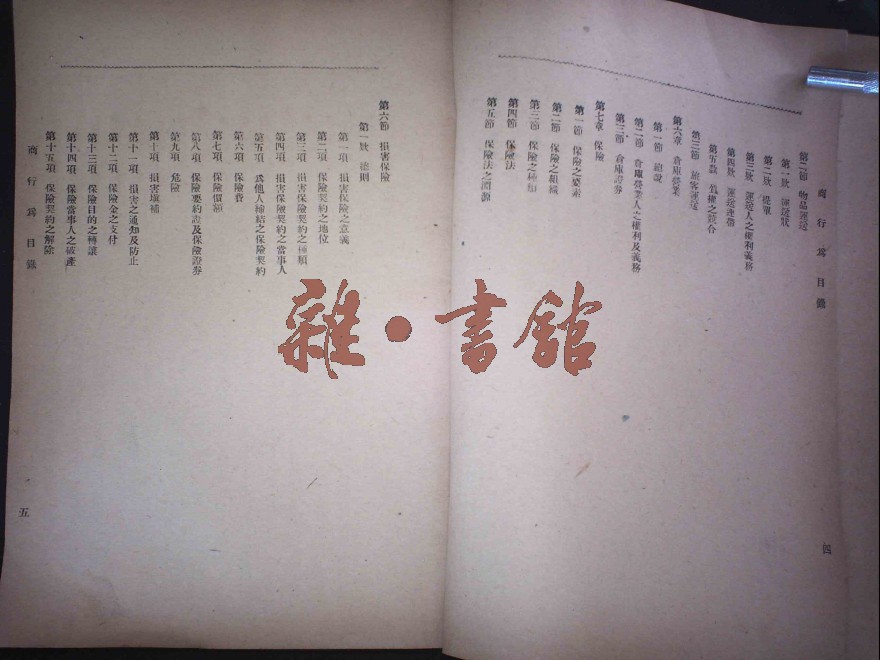 商行為目錄
第二節 物品運送
第一款 運送狀
第二款 提單
第三款 運送人之權利義務
第四款 運送連帶
第五款 負權之競合
第三節 旅客運送
第六章 倉庫營業
第一節 總說
第二節 倉庫營業人之權利及義務
第三節 倉庫證券
第七章 保險
第一節 保險之要素
第二節 保險之組織
第三節 保險之種類
第四節 保險法
第五節 保險法之淵源
四
第六節 損害保險
第一款 總則
第一項 損害保險之意義
第二項 保險契約之地位
第三項 損害保險契約之種類
第四項 損害保險契約之當事人
第五項 為他人締結之保險契約
第六項 保險費
第七項 保險價額
第八項 保險要約證及保險證券
第九項 危險
第十項 損害填補
第十一項 損害之通知及防止
第十二項 保險金之支付
第十三項 保險目的之轉讓
第十四項 保險當事人之破產
第十五項 保險契約之解除
商行為目錄
五
雜·書館